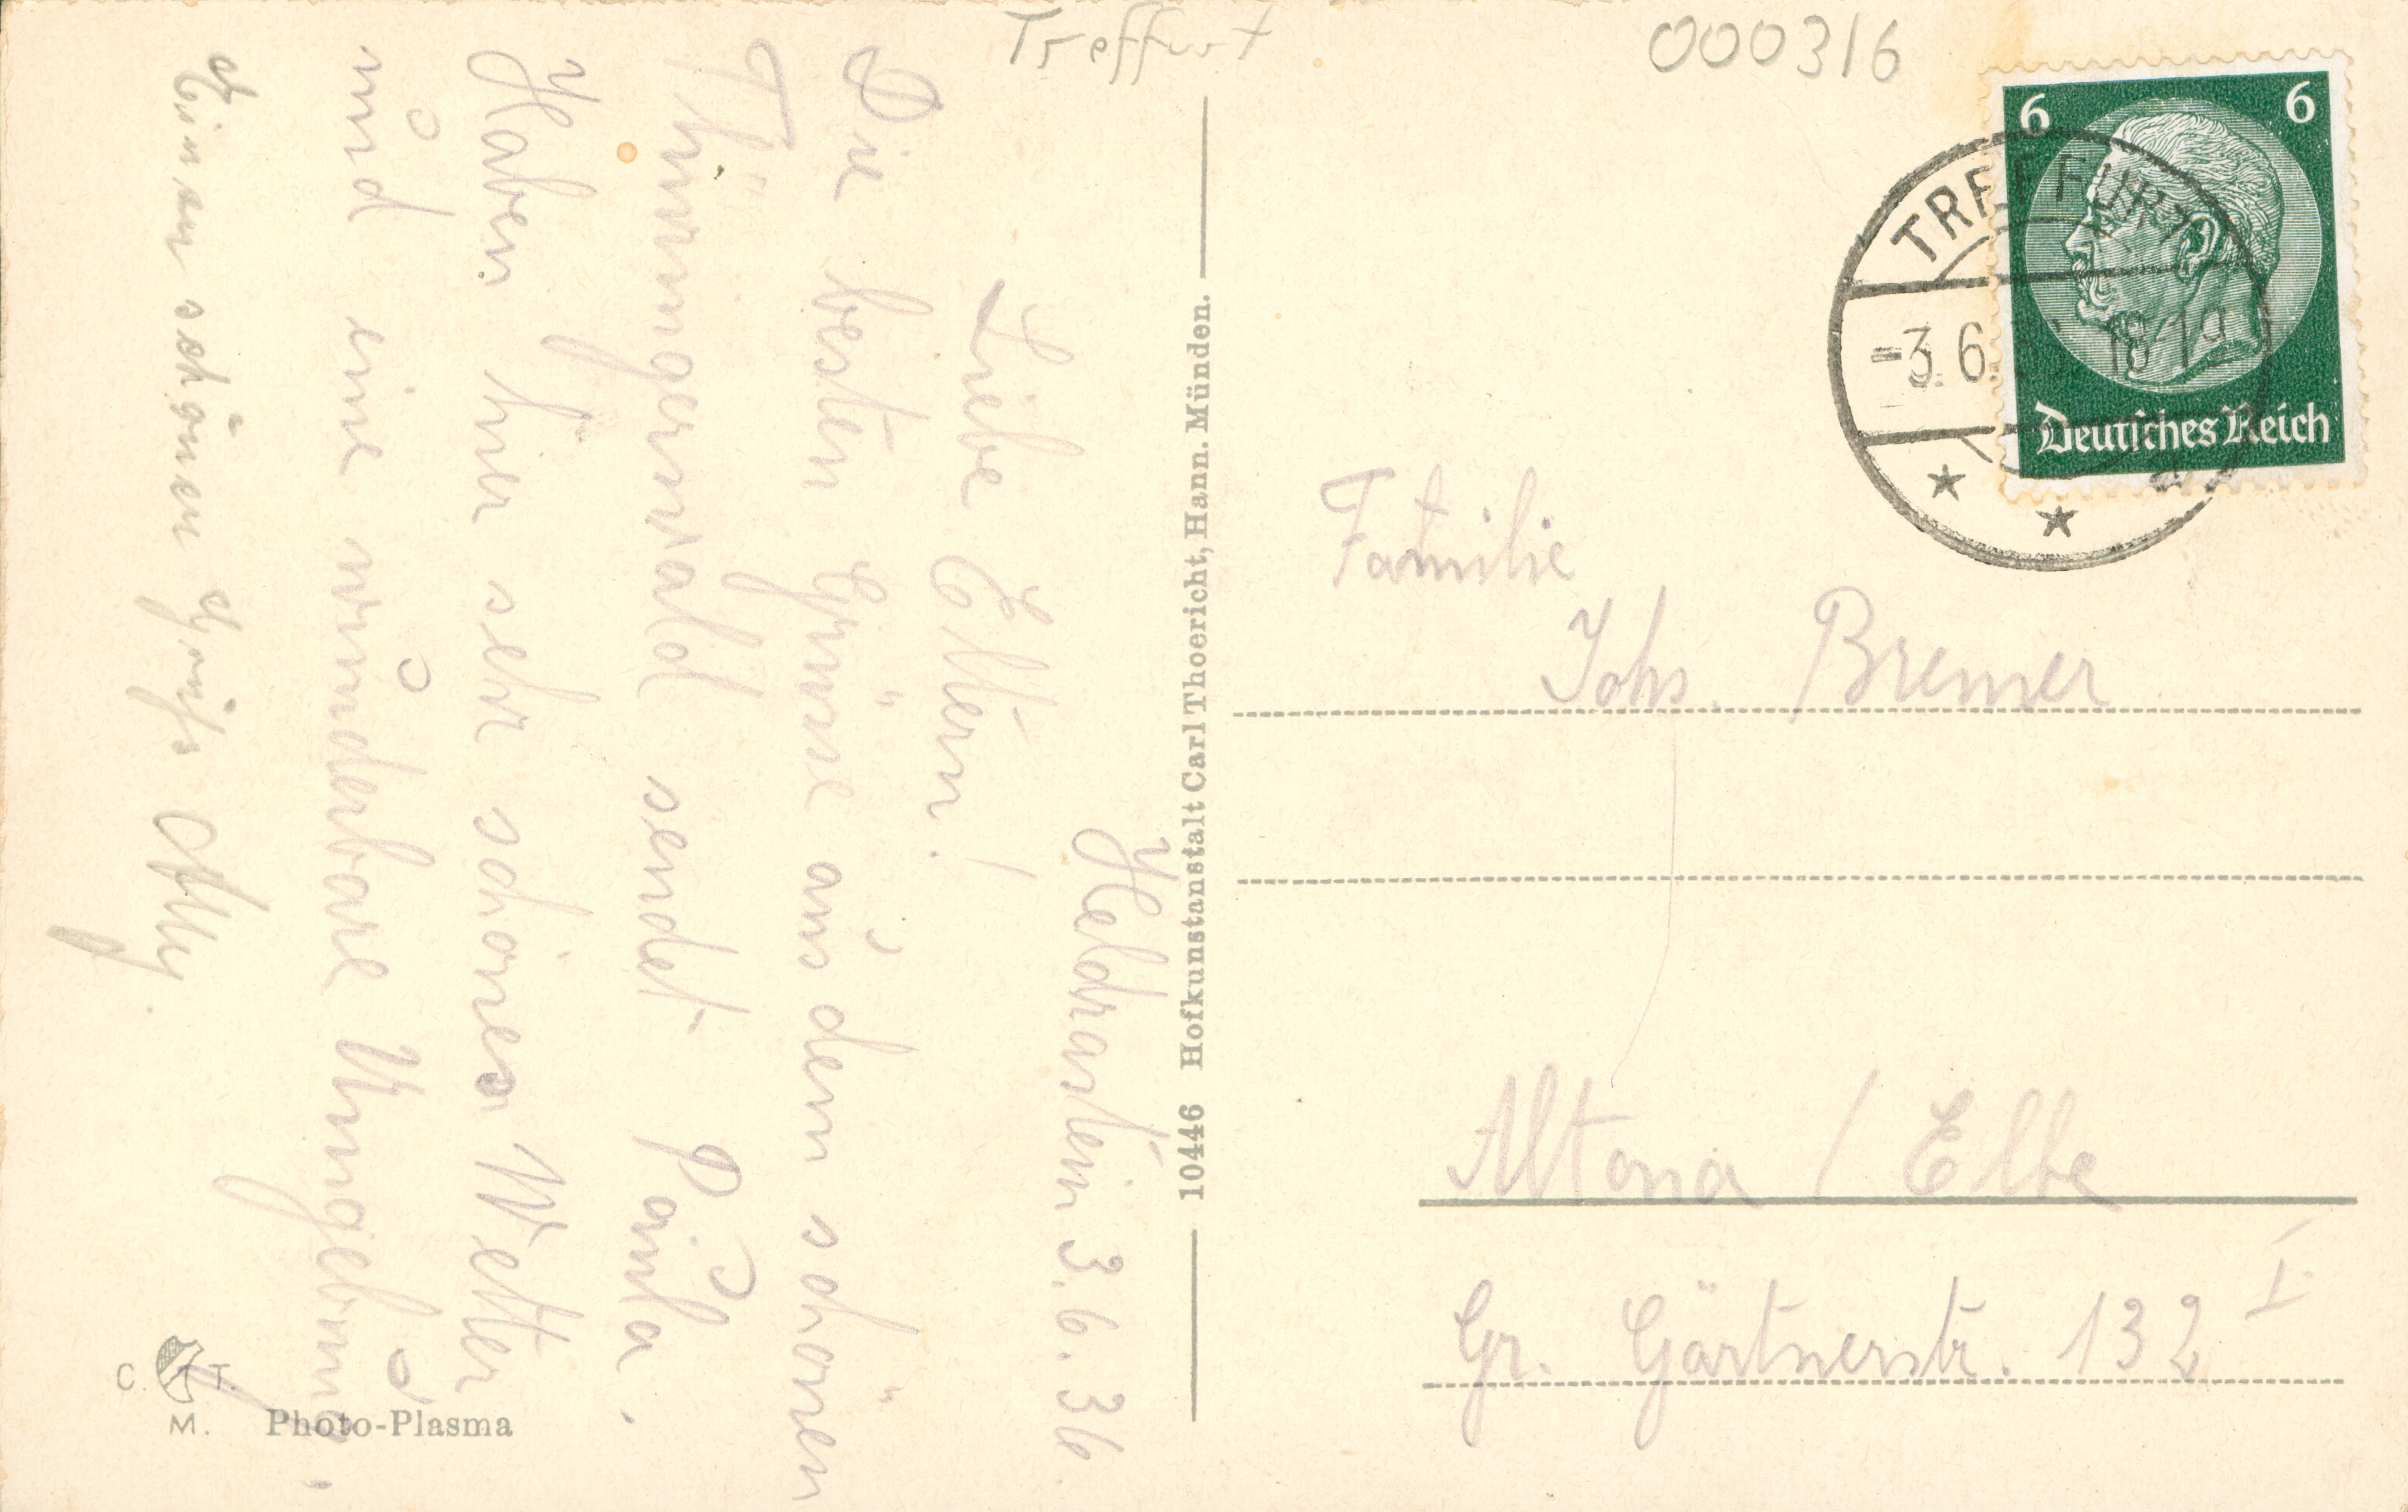 Treffurt
000316
6 6
TREFFURT
-3.6. 18-19
Deutsches Reich
Heldrastein 3.6.36.
Liebe Eltern!
Die besten Grüsse aus dem schönen
Thüringerwald sendet Paula.
Haben hier sehr schönes Wetter
und eine wunderbare Umgebung.
Einen schönen Gruß Olly.
10446 Hofkunstanstalt Carl Thoericht, Hann. Münden.
Familie
Johs. Bremer
Altona / Elbe
Gr. Gärtnerstr. 132 I.
C. T.
M. Photo-Plasma